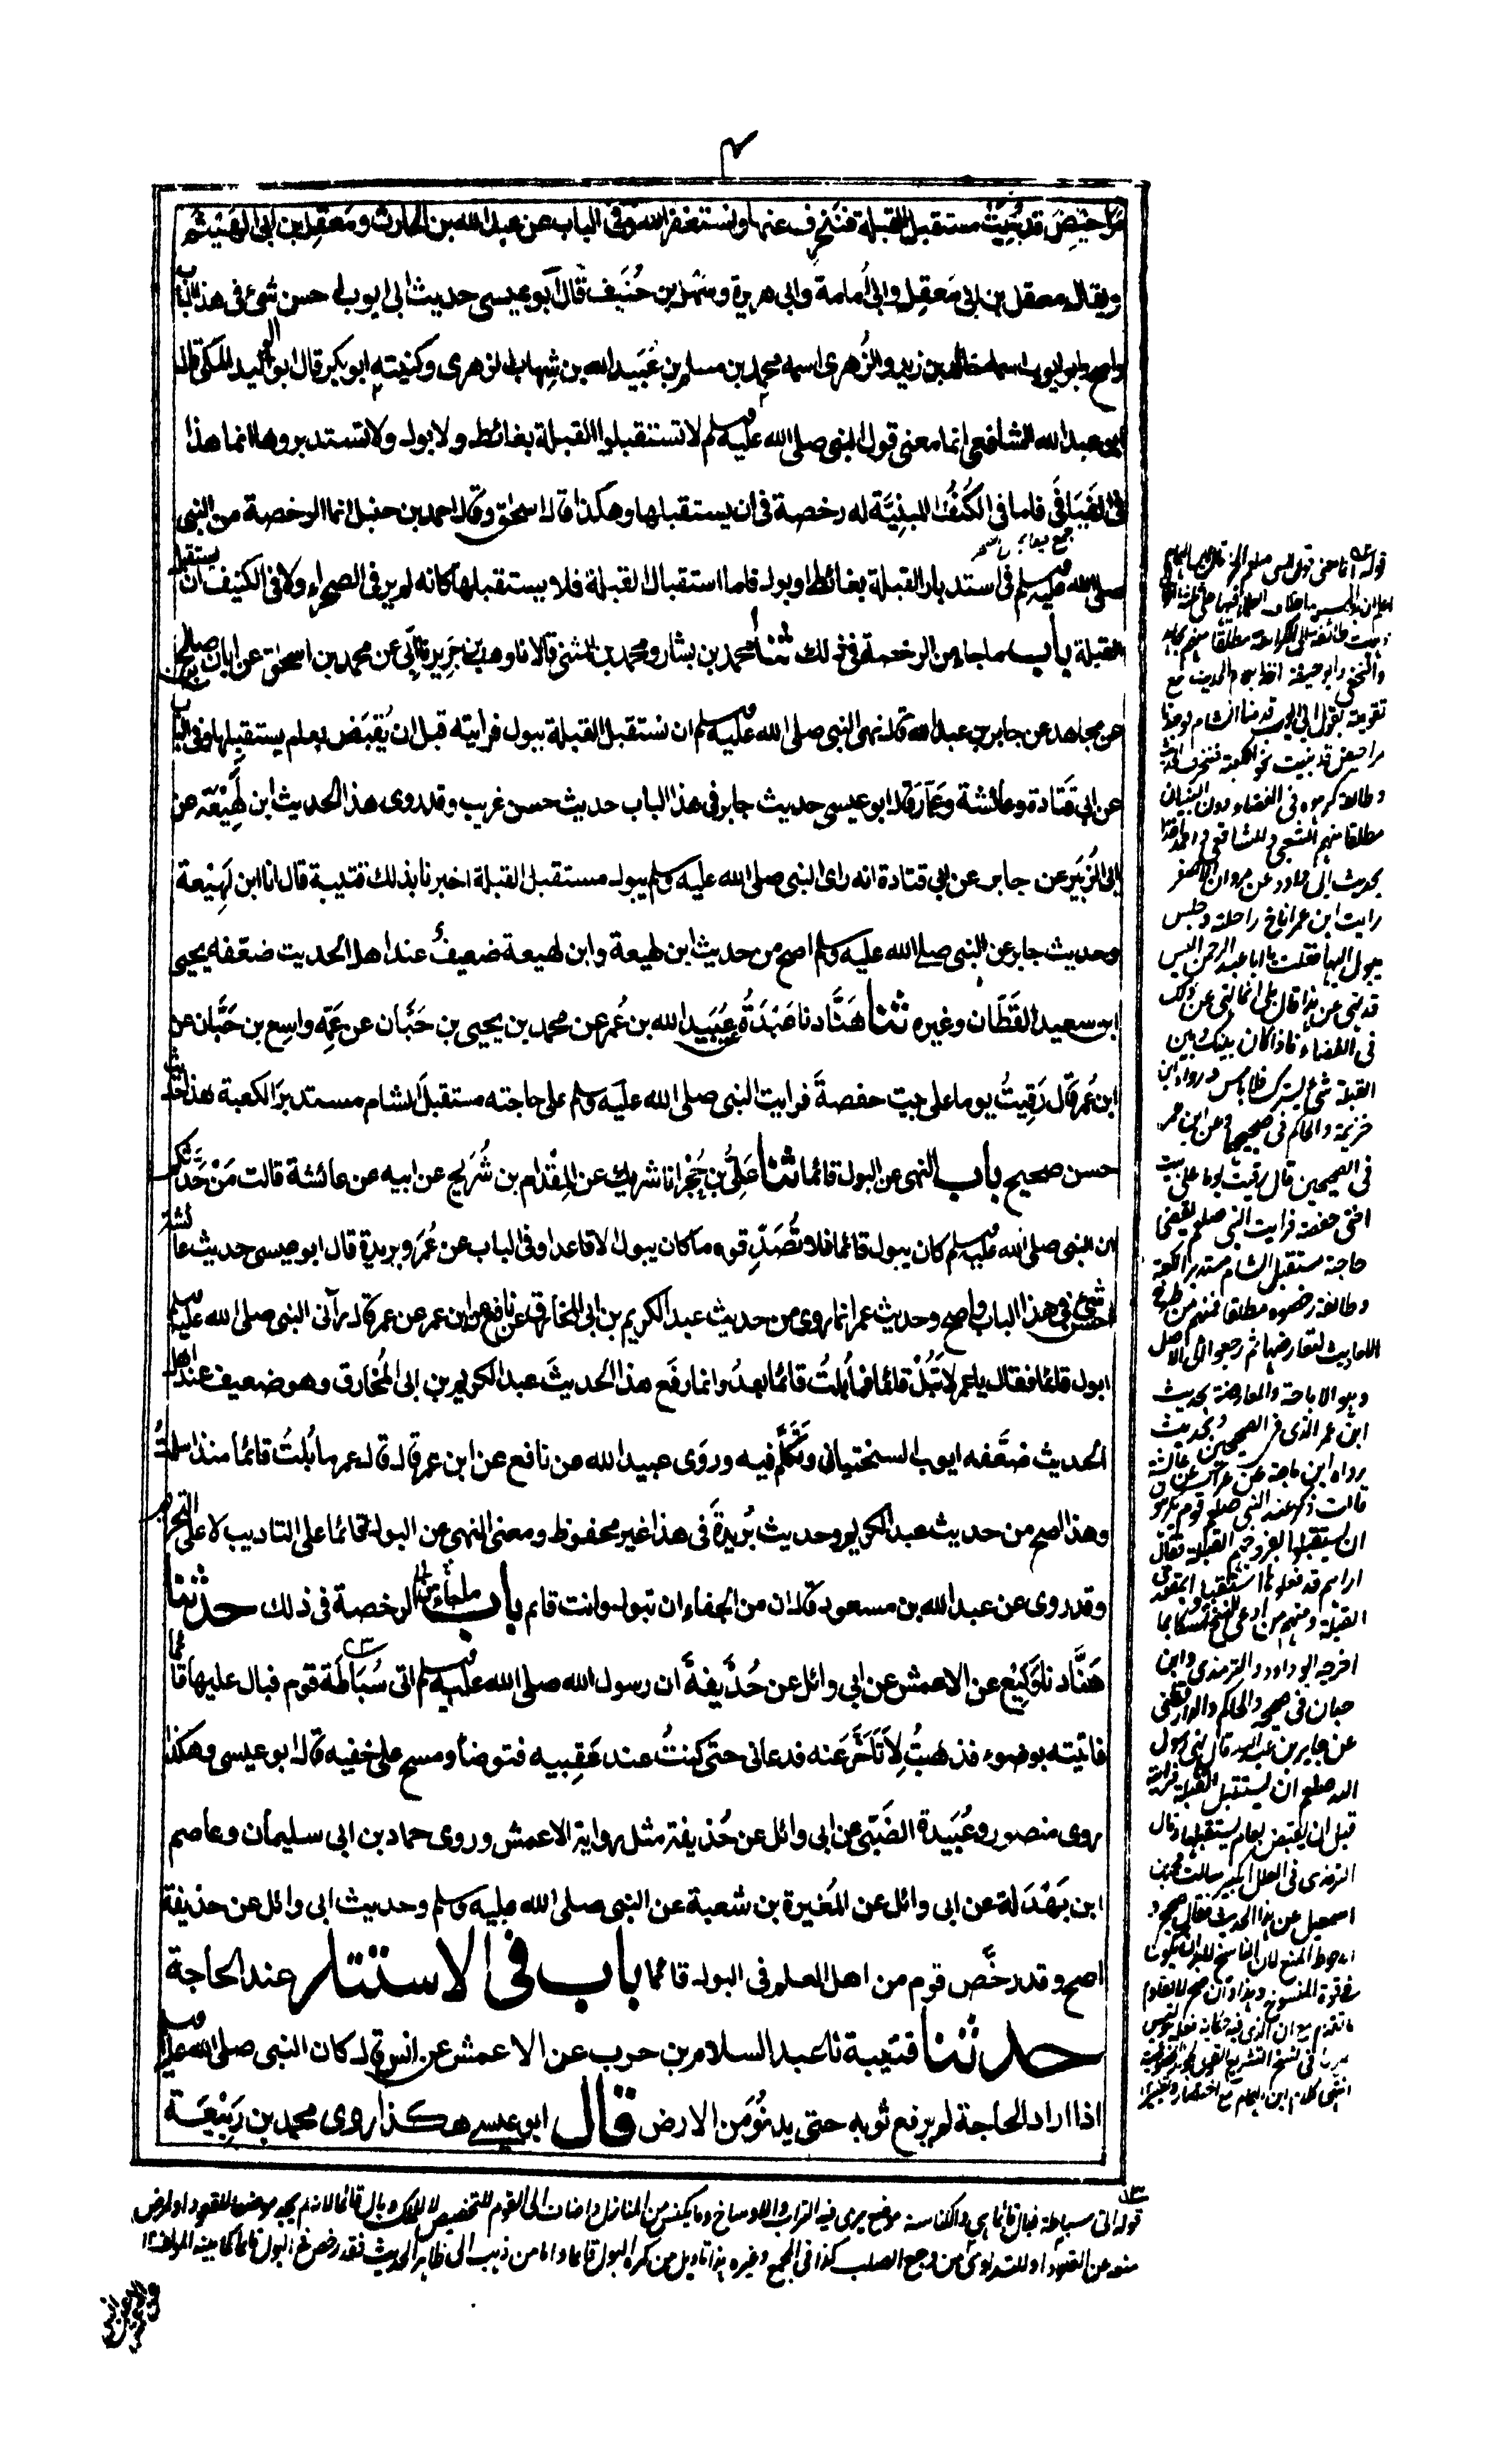 ۴
مَراحيضَ قد بُنِيَت مستقبل القبلة فننحرف عنها ونستغفر الله وفى الباب عن عبد الله بن الحارث ومَعقِل بن ابى الهَيثَم
ويقال معقل بن ابى مَعقِل وابى اُمامة وابى هريرة وسَهل بن حُنَيف قال ابو عيسى حديث ابى ايوب احسن شئ فى هذا الباب
واصح وابو ايوب اسمه خالد بن زيد والزُهرى اسمه محمد بن مسلم بن عُبَيد الله بن شِهاب الزهرى وكنيته ابو بكر قال ابو الوليد المكى قال
ابو عبد الله الشافعى انما معنى قول النبى صلى الله عليه وسلم لا تستقبلوا القبلة بغائط ولا بول ولا تستدبروها انما هذا
فى الفَيَافى فاما فى الكُنُف المبنِيَّة له رخصة فى ان يستقبلها وهكذا قال اسحاق وقال احمد بن حنبل انما الرخصة من النبى
صلى الله عليه وسلم فى استدبار القبلة بغائط او بول فاما استقبال القبلة فلا يستقبلها كانه لم ير فى الصحراء ولا فى الكنيف ان يستقبل
القبلة باب ما جاء من الرخصة فى ذلك ثنا محمد بن بشار ومحمد بن المثنى قالا نا وهب بن جَرِير نا ابى عن محمد بن اسحاق عن ابان بن صالح
عن مجاهد عن جابر بن عبد الله قال نهى النبى صلى الله عليه وسلم ان نستقبل القبلة ببول فرايته قبل ان يُقبَض بعام يستقبلها وفى الباب
عن ابى قَتَادة وعائشة وعَمّار قال ابو عيسى حديث جابر فى هذا الباب حديث حسن غريب وقد روى هذا الحديث ابن لَهِيْعَة عن
ابى الزُبَير عن جابر عن ابى قتادة انه راى النبى صلى الله عليه وسلم يبول مستقبل القبلة اخبرنا بذلك قتيبة قال انا ابن لَهِيْعة
وحديث جابر عن النبى صلى الله عليه وسلم اصح من حديث ابن لهيعة وابن لهيعة ضعيفٌ عند اهل الحديث ضعّفه يحيى
ابن سعيد القَطَّان وغيره ثنا هَنَّاد نا عَبْدَةُ عن عُبَيد الله بن عُمر عن محمد بن يحيى بن حَبَّان عن عَمِّه واسِع بن حَبَّان عن
ابن عُمر قال رَقِيتُ يوما على بيت حفصةَ فرايت النبى صلى الله عليه وسلم على حاجته مستقبل الشام مستدبرَ الكعبة هذا حديث
حسن صحيح باب النهى عن البول قائما ثنا عَلِىُّ بن حُجْر انا شريك عن المِقْدام بن شُرَيح عن ابيه عن عائشة قالت مَنْ حَدَّثكم
ان النبى صلى الله عليه وسلم كان يبول قائما فلا تُصَدِّقوه ما كان يبول الا قاعدا وفى الباب عن عُمَر وبريدة قال ابو عيسى حديث عائشة
احسن شئ فى هذا الباب واصح وحديث عمر انما روى من حديث عبد الكريم بن ابى المخارق عن نافع عن ابن عمر عن عمر قال رآنى النبى صلى الله عليه وسلم
ابول قائما فقال يا عمر لا تَبُلْ قائما فما بُلتُ قائما بعدُ وانما رفَع هذا الحديثَ عبد الكريم بن ابى المُخارق وهو ضعيف عند اهل
الحديث ضعَّفه ايوب السختيانى وتَكلَّم فيه وروَى عبيد الله عن نافع عن ابن عمر قال قال عمر ما بُلتُ قائما منذ اسلمتُ
وهذا اصح من حديث عبد الكريم وحديث بُريدةَ فى هذا غير محفوظ ومعنى النهى عن البول قائما على التاديب لا على التحريم
وقد روى عن عبد الله بن مسعود قال ان من الجفاء ان تبول وانت قائم باب ما جاء من الرخصة فى ذلك حدثنا
هَنَّاد نا وَكِيْع عن الاعمش عن ابى وائل عن حُذَيفةَ ان رسول الله صلى الله عليه وسلم اتى سُبَاطَة قوم فبال عليها قائما
فاتيته بوضوء فذهبتُ لِاَتَأخَّرَ عنه فدعانى حتى كنتُ عند عَقِبيه فتوضأ ومسح على خفيه قال ابو عيسى وهكذا
روى منصور وعُبَيدة الضَبّى عن ابى وائل عن حُذيفة مثل رواية الاعمش وروى حماد بن ابى سليمان وعاصم
ابن بَهْدَلة عن ابى وائل عن المُغيرة بن شعبة عن النبى صلى الله عليه وسلم وحديث ابى وائل عن حذيفة
اصح وقد رخَّص قوم من اهل العلم فى البول قائما باب فى الاستتار عند الحاجة
حدثنا قتيبة نا عبد السلام بن حرب عن الاعمش عن انس قال كان النبى صلى الله عليه وسلم
اذا اراد الحاجة لم يرفع ثوبه حتى يدنُوَ من الارض قال ابو عيسى هكذا روى محمد بن رَبِيْعَة
ذهبت طائفة الى الكراهة مطلقا منهم مجاهد
والنخعى وابو حنيفة اخذا بعموم الحديث مع
تقويته بقول ابى ايوب قدمنا الشام فوجدنا
مراحيض قد بنيت نحو الكعبة فننحرف
وطائفة كرهوه فى الفضاء دون البنيان
مطلقا منهم الشعبى والشافعى واحمد
بحديث ابى داود عن مروان الاصفر
رايت ابن عمر اناخ راحلته وجلس
يبول اليها فقلت يا ابا عبد الرحمن اليس
قد نهى عن هذا قال بلى انما نهى عن ذلك
فى الفضاء فاذا كان بينك وبين
القبلة شئ يسترك فلا باس رواه ابن
خزيمة والحاكم فى صحيحهما وعن ابن عمر
فى الصحيحين قال رقيت يوما على بيت
اختى حفصة فرايت النبى صلعم يقضى
حاجته مستقبل الشام مستدبر الكعبة
وطائفة رخصوه مطلقا فمنهم من طرح
الاحاديث لتعارضها ثم رجعوا الى الاصل
وهو الاباحة والمعارضة بحديث
ابن عمر الذى فى الصحيحين وبحديث
رواه ابن ماجة عن عراك عن عائشة
قالت ذكر عند النبى صلعم قوم يكرهون
ان يستقبلوا بفروجهم القبلة فقال
اراهم قد فعلوها استقبلوا بمقعدتى
القبلة ومنهم من ادعى النسخ تمسكا بما
اخرجه ابو داود والترمذى وابن
حبان فى صحيحه والحاكم والدارقطنى
عن جابر بن عبد الله قال نهى رسول
الله صلعم ان نستقبل القبلة فرايته
قبل ان يقبض بعام يستقبلها وقال
الترمذى فى العلل الكبير سالت محمد بن
اسمعيل عن هذا الحديث فقال صحيح
قوله اتى سباطة فبال قائما هى والكناسة موضع يرمى فيه التراب والاوساخ وما يكنس من المنازل واضافت الى القوم للتخصيص لا للملك وبال قائما لانه لم يجد موضعا للقعود او لمرض
منعه عن القعود او للتداوى من وجع الصلب كذا فى المجمع وغيره هذا تاويل من كره البول قائما واما من ذهب الى ظاهر الحديث فقد رخص فى البول قائما كما بينه المؤلف ۱۲